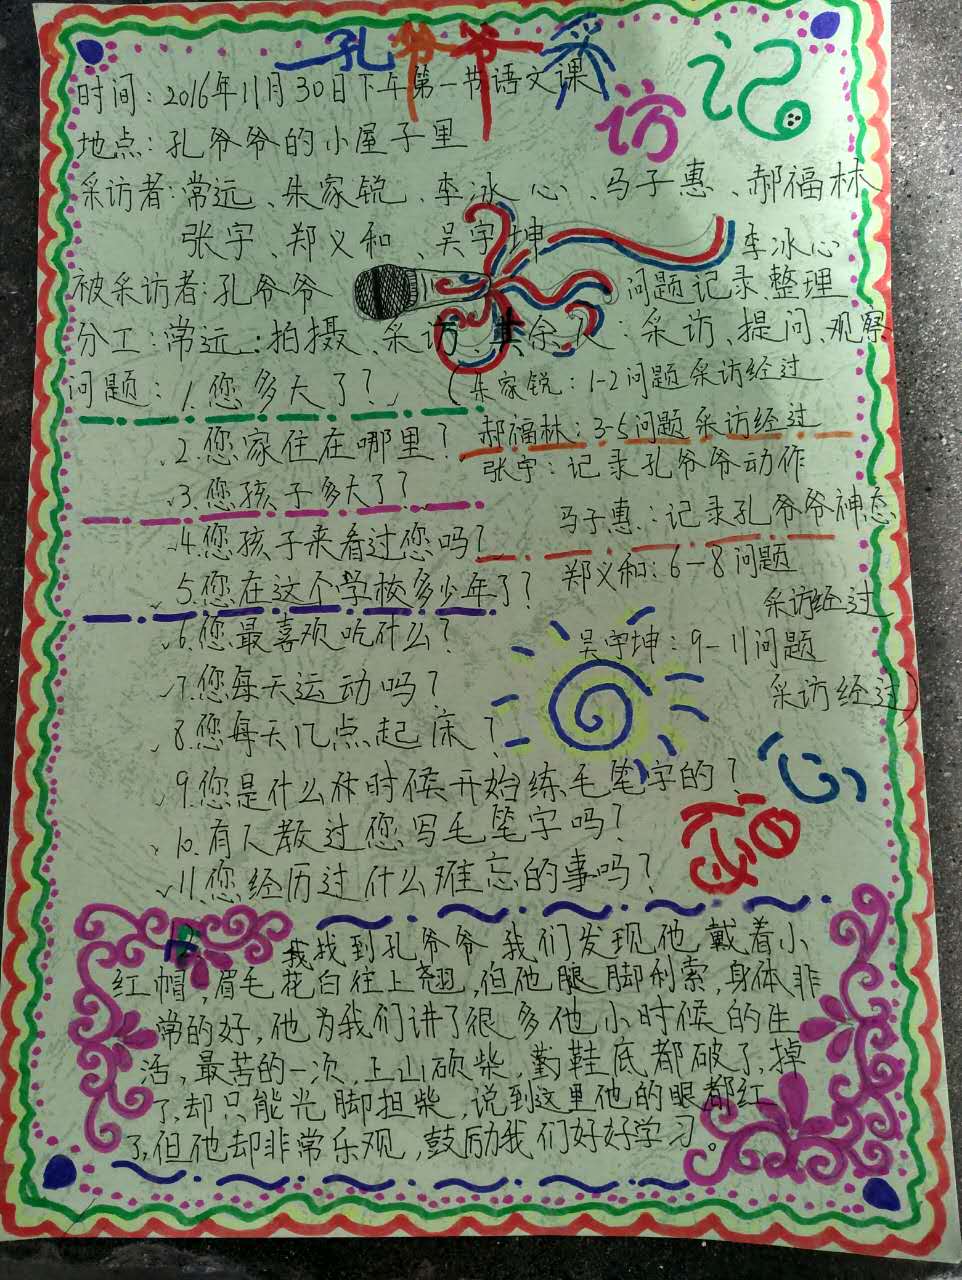 孔爷爷采访记
时间：2016年11月30日下午第一节语文课
地点：孔爷爷的小屋子里
采访者：常远、朱家锐、李冰心、马子惠、郝福林
张宇、郑义和、吴宇坤
李冰心
被采访者：孔爷爷
问题记录、整理
分工：常远：拍摄、采访 其余人：采访、提问、观察
问题：1.您多大了？
（朱家锐：1-2问题采访经过
2.您家住在哪里？
郝福林：3-5问题采访经过
3.您孩子多大了？
张宇：记录孔爷爷动作
4.您孩子来看过您吗？
马子惠：记录孔爷爷神态
5.您在这个学校多少年了？
郑义和：6-8问题
采访经过
6.您最喜欢吃什么？
吴宇坤：9-11问题
采访经过）
7.您每天运动吗？
8.您每天几点起床？
9.您是什么时候开始练毛笔字的？
10.有人教过您写毛笔字吗？
11.您经历过什么难忘的事吗？
我找到孔爷爷我们发现他戴着小
红帽，眉毛花白往上翘，但他腿脚利索，身体非
常的好，他为我们讲了很多他小时候的生
活，最苦的一次，上山砍柴，鞋底都破了，掉
了，却只能光脚担柴，说到这里他的眼都红
了，但他却非常乐观，鼓励我们好好学习。